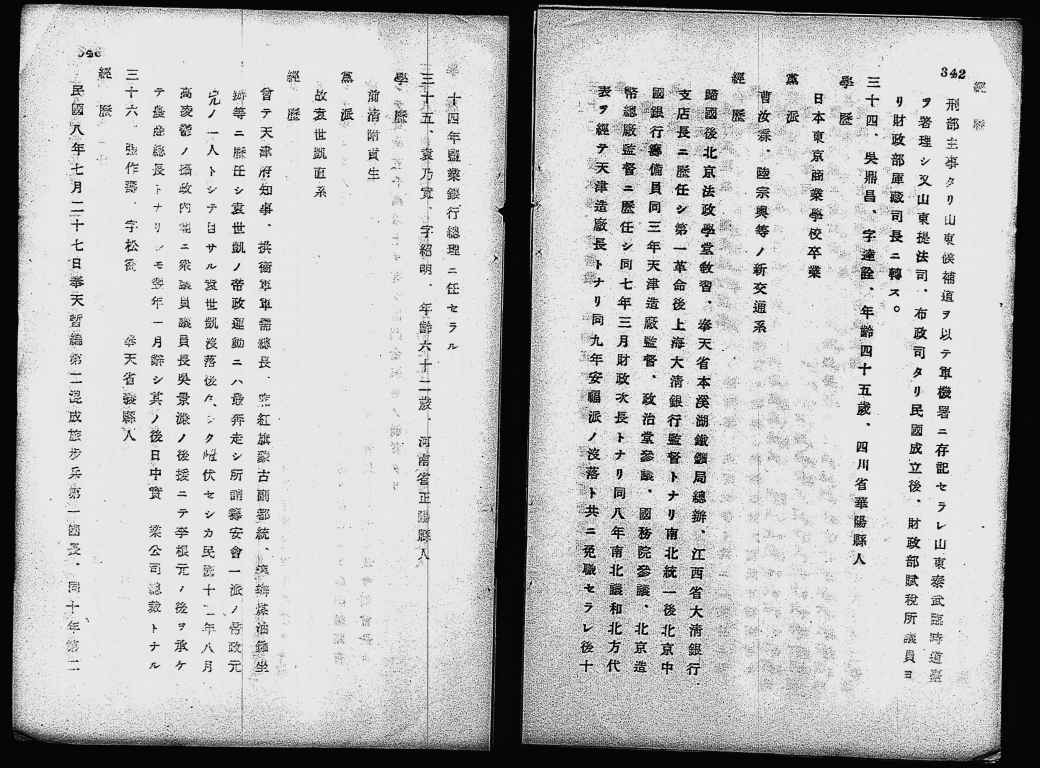 342
經歷
刑部主事タリ山東候補道ヲ以テ軍機署ニ存記セラレ山東泰武臨時道臺
ヲ署理シ又山東提法司、布政司タリ民國成立後、財政部賦稅所議員ヨ
リ財政部庫藏司長ニ轉ス。
三十四、吳鼎昌、字達詮、年齡四十五歲、四川省華陽縣人
學歷
日本東京商業學校卒業
黨派
曹汝霖、陸宗輿等ノ新交通系
經歷
歸國後北京法政學堂敎習、奉天省本溪湖鐵鑛局總辦、江西省大淸銀行
支店長ニ歷任シ第一革命後上海大淸銀行監督トナリ南北統一後北京中
國銀行籌備員同三年天津造廠監督、政治堂參議、國務院參議、北京造
幣總廠監督ニ歷任シ同七年三月財政次長トナリ同八年南北議和北方代
表ヲ經テ天津造廠長トナリ同九年安福派ノ沒落ト共ニ免職セラレ後十
十四年鹽業銀行總理ニ任セラル
三十五、袁乃寬、字紹明、年齡六十二歲、河南省正陽縣人
學歷
前淸附貢生
黨派
故袁世凱直系
經歷
曾テ天津府知事、拱衞軍軍需總長、紅旗蒙古副都統、煤油鑛坐
辦等ニ歷任シ袁世凱ノ帝政運動ニハ最奔走シ所謂籌安會一派ノ帝政元
兇ノ一人トシテ目サル袁世凱沒落後久シク雌伏セシカ民國十一年八月
高凌霨ノ攝政內閣ニ衆議員議長吳景濂ノ後援ニテ李根元ノ後ヲ承ケ
テ農商總長トナリシモ翌年一月辭シ其ノ後日中實業公司總裁トナル
三十六、張作濤、字松 奉天省縣人
經歷
民國八年七月二十七日奉天暫編第二混成旅步兵第一團長、同十年第二